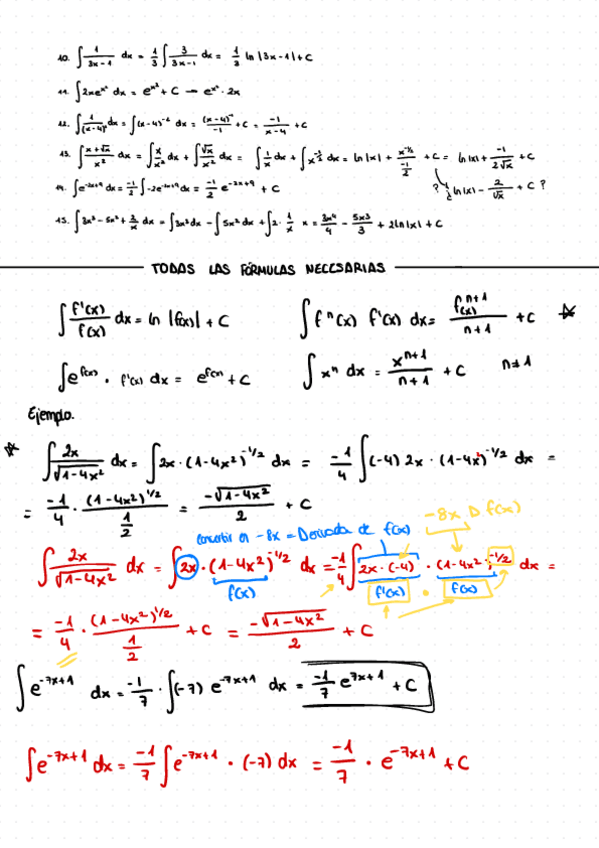 10. ∫ 1/(3x-1) dx = 1/3 ∫ 3/(3x-1) dx = 1/3 ln|3x-1|+C
11. ∫2xe^x² dx = e^x² + C → e^x² · 2x
12. ∫ 1/(x-4)² dx = ∫(x-4)^-2 dx = (x-4)^-1/-1 + C = -1/(x-4) + C
13. ∫ (x+√x)/x² dx = ∫ x/x² dx + ∫ √x/x² dx = ∫ 1/x dx + ∫ x^-3/2 dx = ln|x| + x^-1/2/(-1/2) + C = ln|x| + -1/(2√x) + C
? ln|x| - 2/√x + C ?
14. ∫e^-2x+9 dx = -1/2 ∫-2e^-2x+9 dx = -1/2 e^-2x+9 + C
15. ∫ 3x³ - 5x² + 2/x dx = ∫3x³ dx - ∫5x² dx + ∫2 · 1/x x = 3x⁴/4 - 5x3/3 + 2ln|x| + C
TODAS LAS FÓRMULAS NECESARIAS
∫ f'(x)/f(x) dx = ln |f(x)| + C ∫ f^n(x) f'(x) dx = f(x)^n+1/(n+1) + C
∫e^f(x) · f'(x) dx = e^f(x) + C ∫ x^n dx = x^n+1/(n+1) + C n≠1
Ejemplo.
∫ 2x/√(1-4x²) dx = ∫ 2x · (1-4x²)^-1/2 dx = -1/4 ∫(-4) 2x · (1-4x²)^-1/2 dx =
= -1/4 · (1-4x²)^1/2/(1/2) = -√(1-4x²)/2 + C
-8x D f(x)
convertir en -8x = Derivada de f(x)
∫ 2x/√(1-4x²) dx = ∫ 2x · (1-4x²)^-1/2 dx = -1/4 ∫ 2x · (-4) · (1-4x²)^-1/2 dx =
f(x) f'(x) · f(x)
= -1/4 · (1-4x²)^1/2/(1/2) + C = -√(1-4x²)/2 + C
∫e^-7x+1 dx = -1/7 · ∫(-7) e^-7x+1 dx = -1/7 e^7x+1 + C
∫e^-7x+1 dx = -1/7 ∫e^-7x+1 · (-7) dx = -1/7 · e^-7x+1 + C